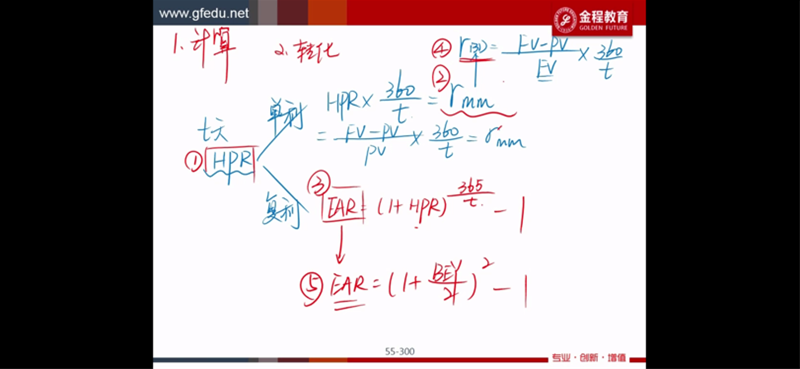 www.gfedu.net
金程教育
GOLDEN FUTURE
1.计算
2.转化
④ r_BD = FV-PV/FV × 360/t
②
单利 HPR × 360/t = r_mm
= FV-PV/PV × 360/t = r_mm
t天
① HPR
复利
③ EAR = (1+HPR)^365/t - 1
⑤ EAR = (1+BEY/2)^2 - 1
55-300
专业·创新·增值